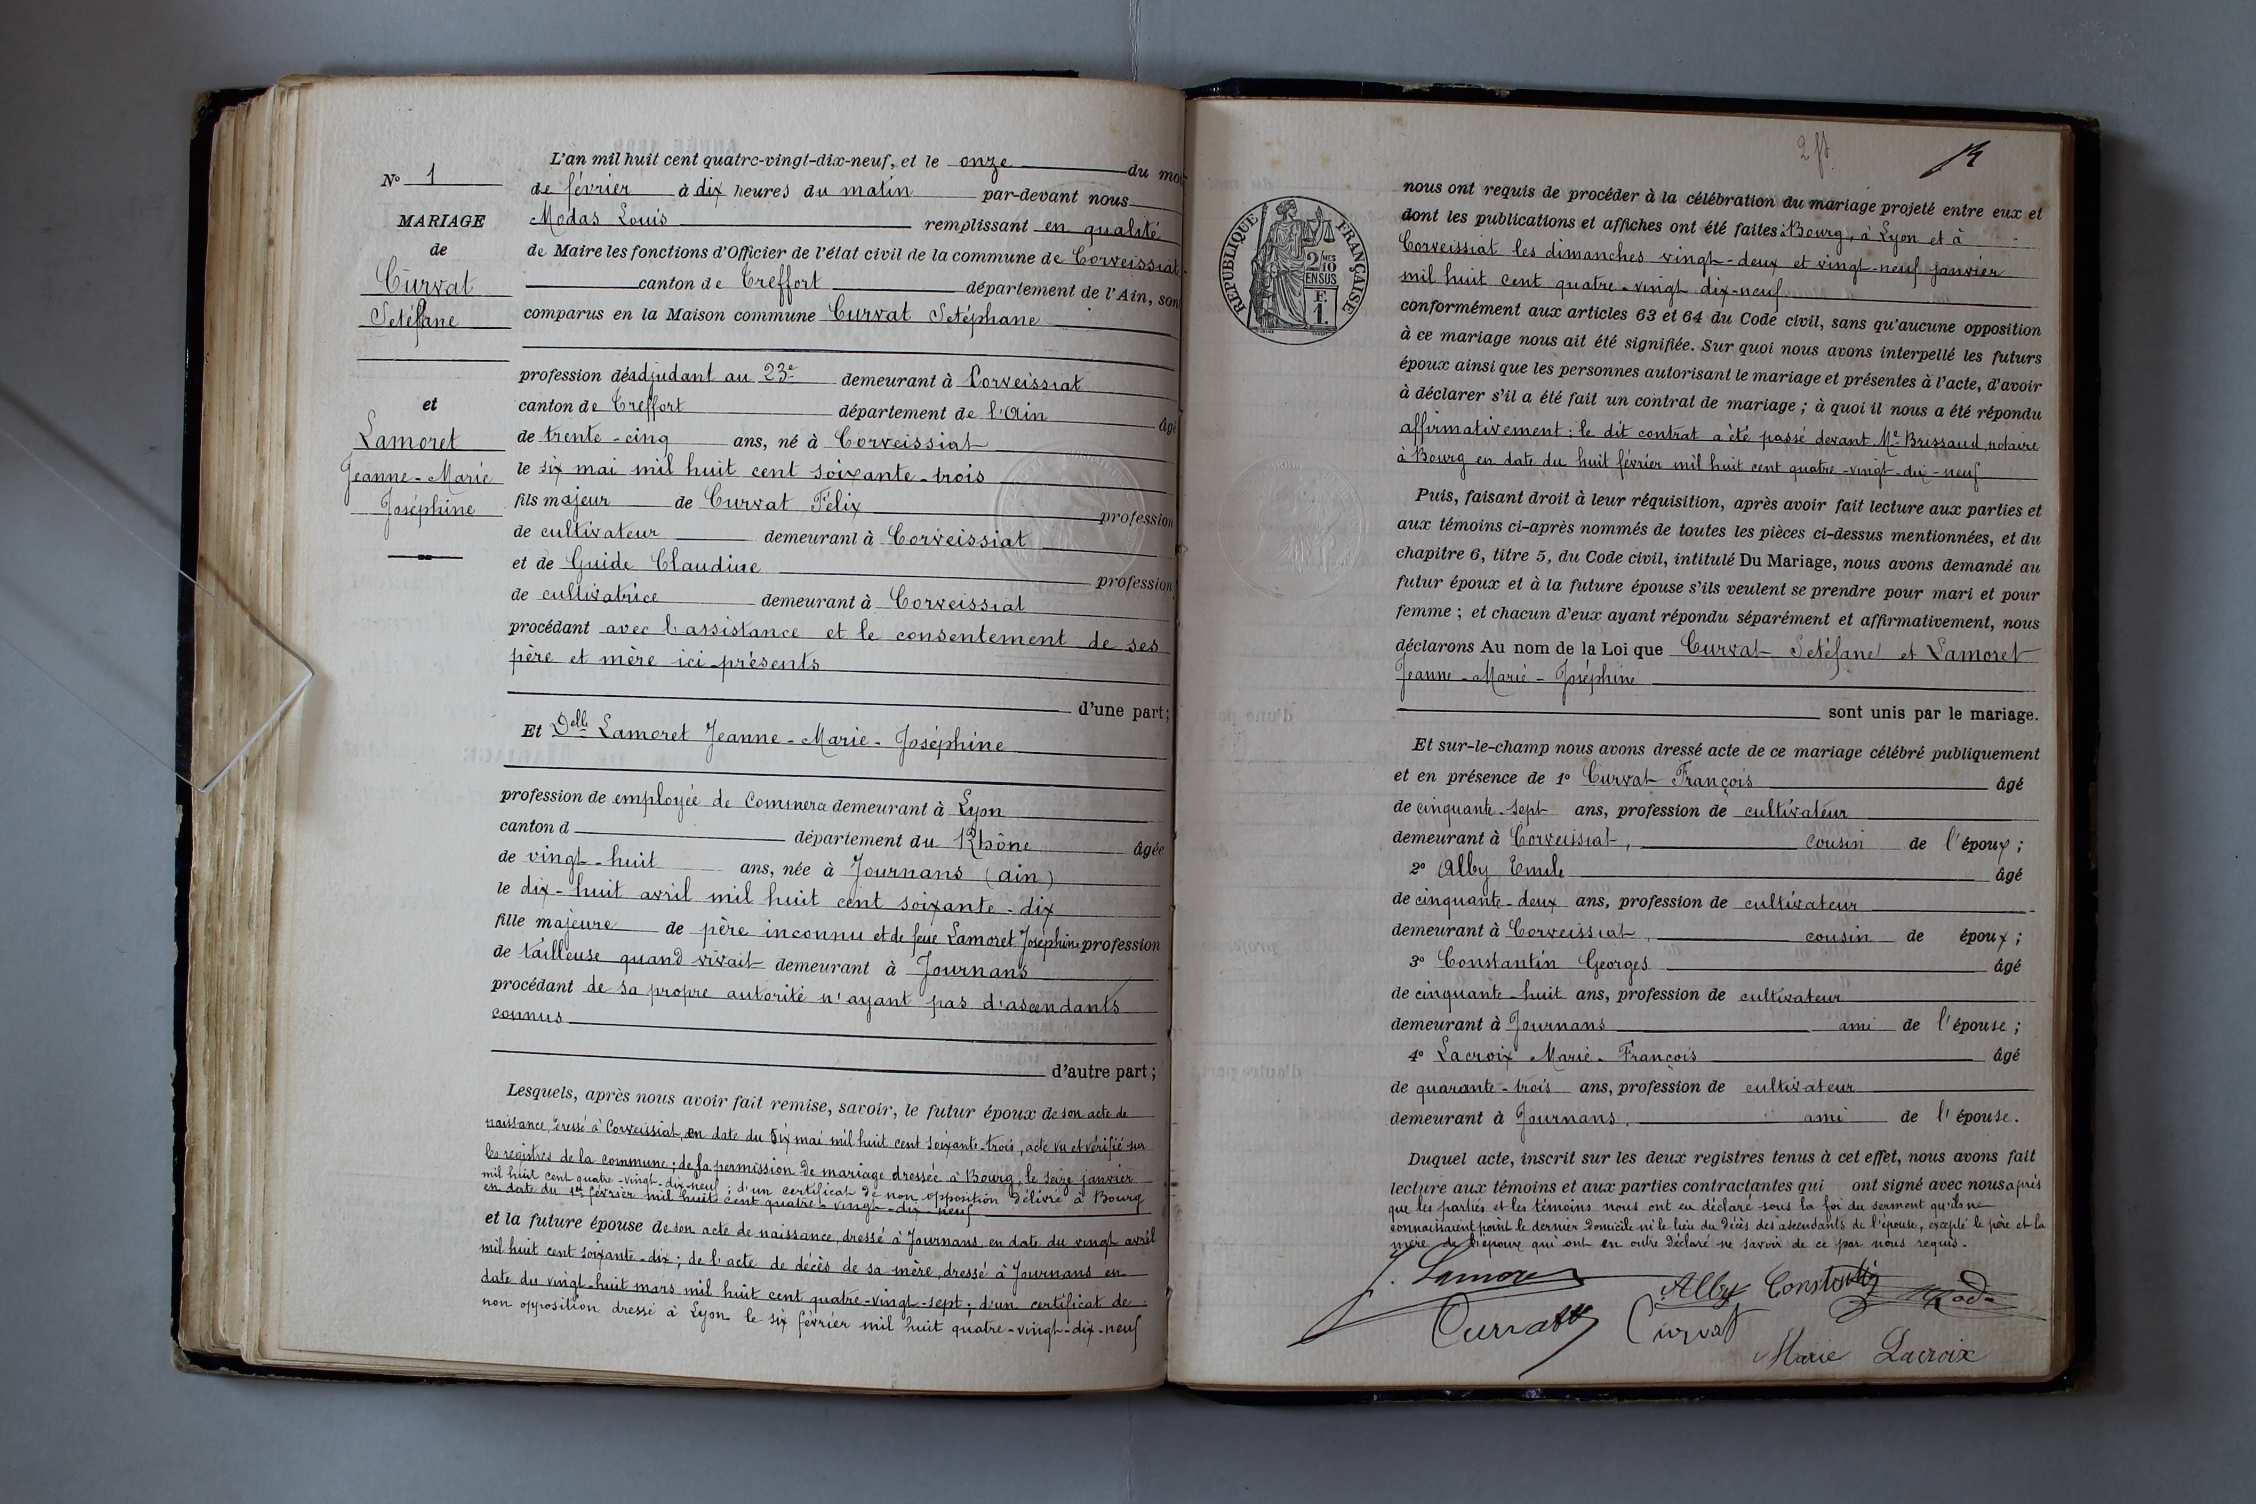 N° 1
MARIAGE
de
Curvat
Setéfane
et
Lamoret
Jeanne-Marie
Joséphine
L'an mil huit cent quatre-vingt-dix-neuf, et le onze du mois
de février à dix heures du matin par-devant nous
Modas Louis remplissant en qualité
de Maire les fonctions d'Officier de l'état civil de la commune de Corveissiat
canton de Treffort département de l'Ain, sont
comparus en la Maison commune Curvat Setéphane
profession d'adjudant au 23e demeurant à Corveissiat
canton de Treffort département de l'Ain âgé
de trente-cinq ans, né à Corveissiat
le six mai mil huit cent soixante-trois
fils majeur de Curvat Félix profession
de cultivateur demeurant à Corveissiat
et de Guide Claudine profession
de cultivatrice demeurant à Corveissiat
procédant avec l'assistance et le consentement de ses
père et mère ici-présents
d'une part;
Et Delle Lamoret Jeanne-Marie-Joséphine
profession de employée de commerce demeurant à Lyon
canton d département du Rhône âgée
de vingt-huit ans, née à Journans (ain)
le dix-huit avril mil huit cent soixante-dix
fille majeure de père inconnu et de feue Lamoret Joséphine profession
de tailleuse quand vivait demeurant à Journans
procédant de sa propre autorité n'ayant pas d'ascendants
connus
d'autre part;
Lesquels, après nous avoir fait remise, savoir, le futur époux de son acte de
naissance, dressé à Corveissiat, en date du six mai mil huit cent soixante-trois, acte vu et vérifié sur
les registres de la commune; de la permission de mariage dressée à Bourg, le seize janvier
mil huit cent quatre-vingt-dix-neuf; d'un certificat de non opposition délivré à Bourg
en date du 1er février mil huit cent quatre-vingt-dix-neuf
et la future épouse de son acte de naissance, dressé à Journans en date du vingt avril
mil huit cent soixante-dix; de l'acte de décès de sa mère, dressé à Journans en
date du vingt-huit mars mil huit cent quatre-vingt-sept; d'un certificat de
non opposition dressé à Lyon le six février mil huit quatre-vingt-dix-neuf
RÉPUBLIQUE FRANÇAISE
2/10
EN SUS
F.
1.
nous ont requis de procéder à la célébration du mariage projeté entre eux et
dont les publications et affiches ont été faites à Bourg, à Lyon et à
Corveissiat les dimanches vingt-deux et vingt-neuf janvier
mil huit cent quatre-vingt dix-neuf
conformément aux articles 63 et 64 du Code civil, sans qu'aucune opposition
à ce mariage nous ait été signifiée. Sur quoi nous avons interpellé les futurs
époux ainsi que les personnes autorisant le mariage et présentes à l'acte, d'avoir
à déclarer s'il a été fait un contrat de mariage; à quoi il nous a été répondu
affirmativement: le dit contrat a été passé devant Me Brissaud, notaire
à Bourg en date du huit février mil huit cent quatre-vingt-dix-neuf
Puis, faisant droit à leur réquisition, après avoir fait lecture aux parties et
aux témoins ci-après nommés de toutes les pièces ci-dessus mentionnées, et du
chapitre 6, titre 5, du Code civil, intitulé Du Mariage, nous avons demandé au
futur époux et à la future épouse s'ils veulent se prendre pour mari et pour
femme; et chacun d'eux ayant répondu séparément et affirmativement, nous
déclarons Au nom de la Loi que Curvat Setéfane et Lamoret
Jeanne-Marie-Joséphine
sont unis par le mariage.
Et sur-le-champ nous avons dressé acte de ce mariage célébré publiquement
et en présence de 1° Curvat François âgé
de cinquante-sept ans, profession de cultivateur
demeurant à Corveissiat, cousin de l'époux;
2° Alby Emile âgé
de cinquante-deux ans, profession de cultivateur
demeurant à Corveissiat, cousin de époux;
3° Constantin Georges âgé
de cinquante-huit ans, profession de cultivateur
demeurant à Journans ami de l'épouse;
4° Lacroix Marie-François âgé
de quarante-trois ans, profession de cultivateur
demeurant à Journans, ami de l'épouse.
Duquel acte, inscrit sur les deux registres tenus à cet effet, nous avons fait
lecture aux témoins et aux parties contractantes qui ont signé avec nous après
que les parties et les témoins nous ont eu déclaré sous la foi du serment qu'ils ne
connaissaient point le dernier domicile ni le lieu du décès des ascendants de l'épouse, excepté le père et la
mère de l'époux qui ont en outre déclaré ne savoir de ce par nous requis.
J. Lamoret
Alby Constantin
Curvat Curvat
Marie Lacroix